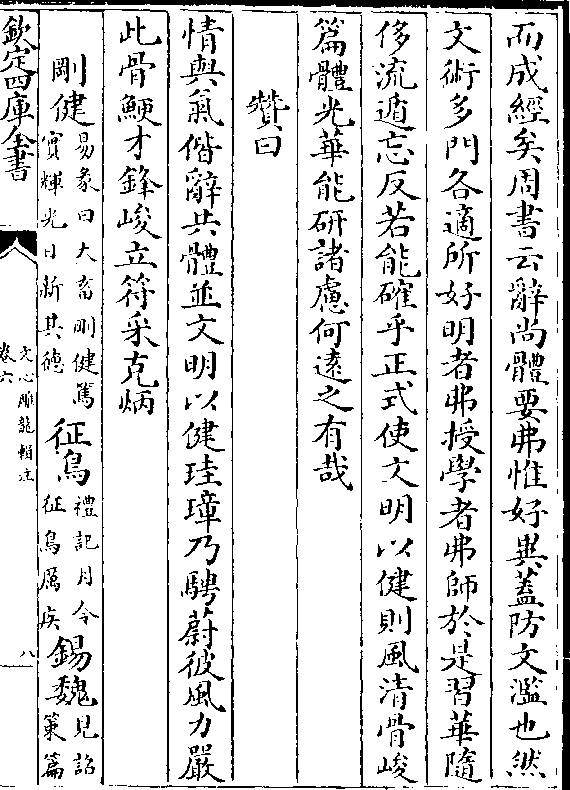 而成經矣周書云辭尚體要弗惟好異蓋防文濫也然
文術多門各適所好明者弗授學者弗師於是習華隨
侈流遁忘反若能確乎正式使文明以健則風清骨峻
篇體光華能研諸慮何遠之有哉
贊曰
情與氣偕辭共體並文明以健珪璋乃騁蔚彼風力嚴
此骨鯁才鋒峻立符采克炳
剛健易彖曰大畜剛健篤實輝光日新其德征鳥禮記月令征鳥厲疾錫魏見詔策篇
欽定四庫全書
文心雕龍輯注
卷六
八